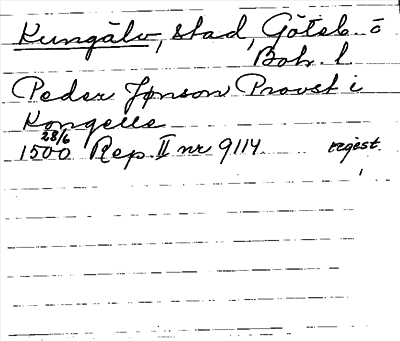 Kungälv, stad, Göteb. o
Boh. l.
Peder Jønson Provst i
Kongelle
28/6
1500 Rep. II nr 9114. regest.